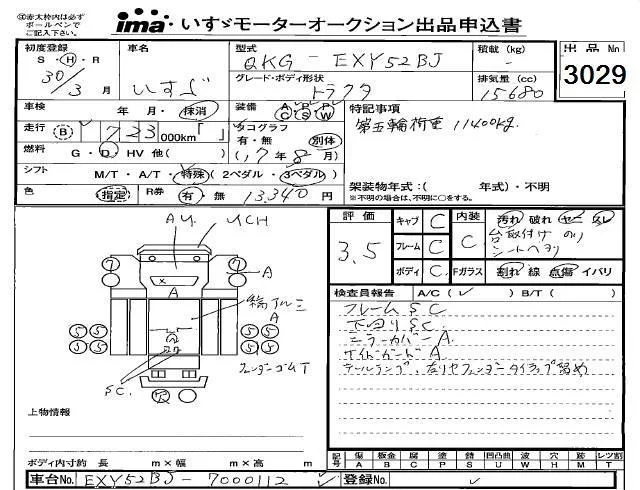 ①赤太枠内は必ず
ボールペンで
ご記入下さい。
ima いすゞモーターオークション出品申込書
初度登録 車名 型式 積載 (kg) 出品No
S・H・R QKG - EXY52BJ -
30/3 月 いすゞ グレード・ボディ形状 排気量 (cc) 3029
トラクタ 15680
車検 年・月・抹消 装備 A P P C S W 特記事項
走行 B 723 000km「 」 タコグラフ 第五輪荷重 11400kg
有・無 別体
燃料 G・D・HV 他( ) (17年8月)
シフト M/T・A/T・特殊 ( 2ペダル・3ペダル) 架装物年式:( 年式)・不明
色 指定 R券 有・無 13,340 円 ※不明の場合は、不明に○をする。
評価 キャブ C 内装 汚れ 破れ ヤニ スレ
3.5 フレーム C C 台取付け のり
ボディ C Fガラス 割れ 線 点傷 イバリ
検査員報告 A/C( ✓ ) B/T( )
フレーム SC
下回り SC
ミラーカバー A
サイドガード A
テールランプ、左リヤフェンダータイラップ留め
Aリ
リCH
7 7
A
A
輪アルミ
A
5 5 5 5
5 5 5 5
フェンダーゴムT
SC
上物情報
ボディ内寸約 長 m×幅 m×高 m
記号 傷 板金 腐 塗 錆 凹凸曲 波 穴 跡 レツ割
A B C P S U W H M T
車台No. EXY52BJ - 7000112 ✓ 登録No. ✓